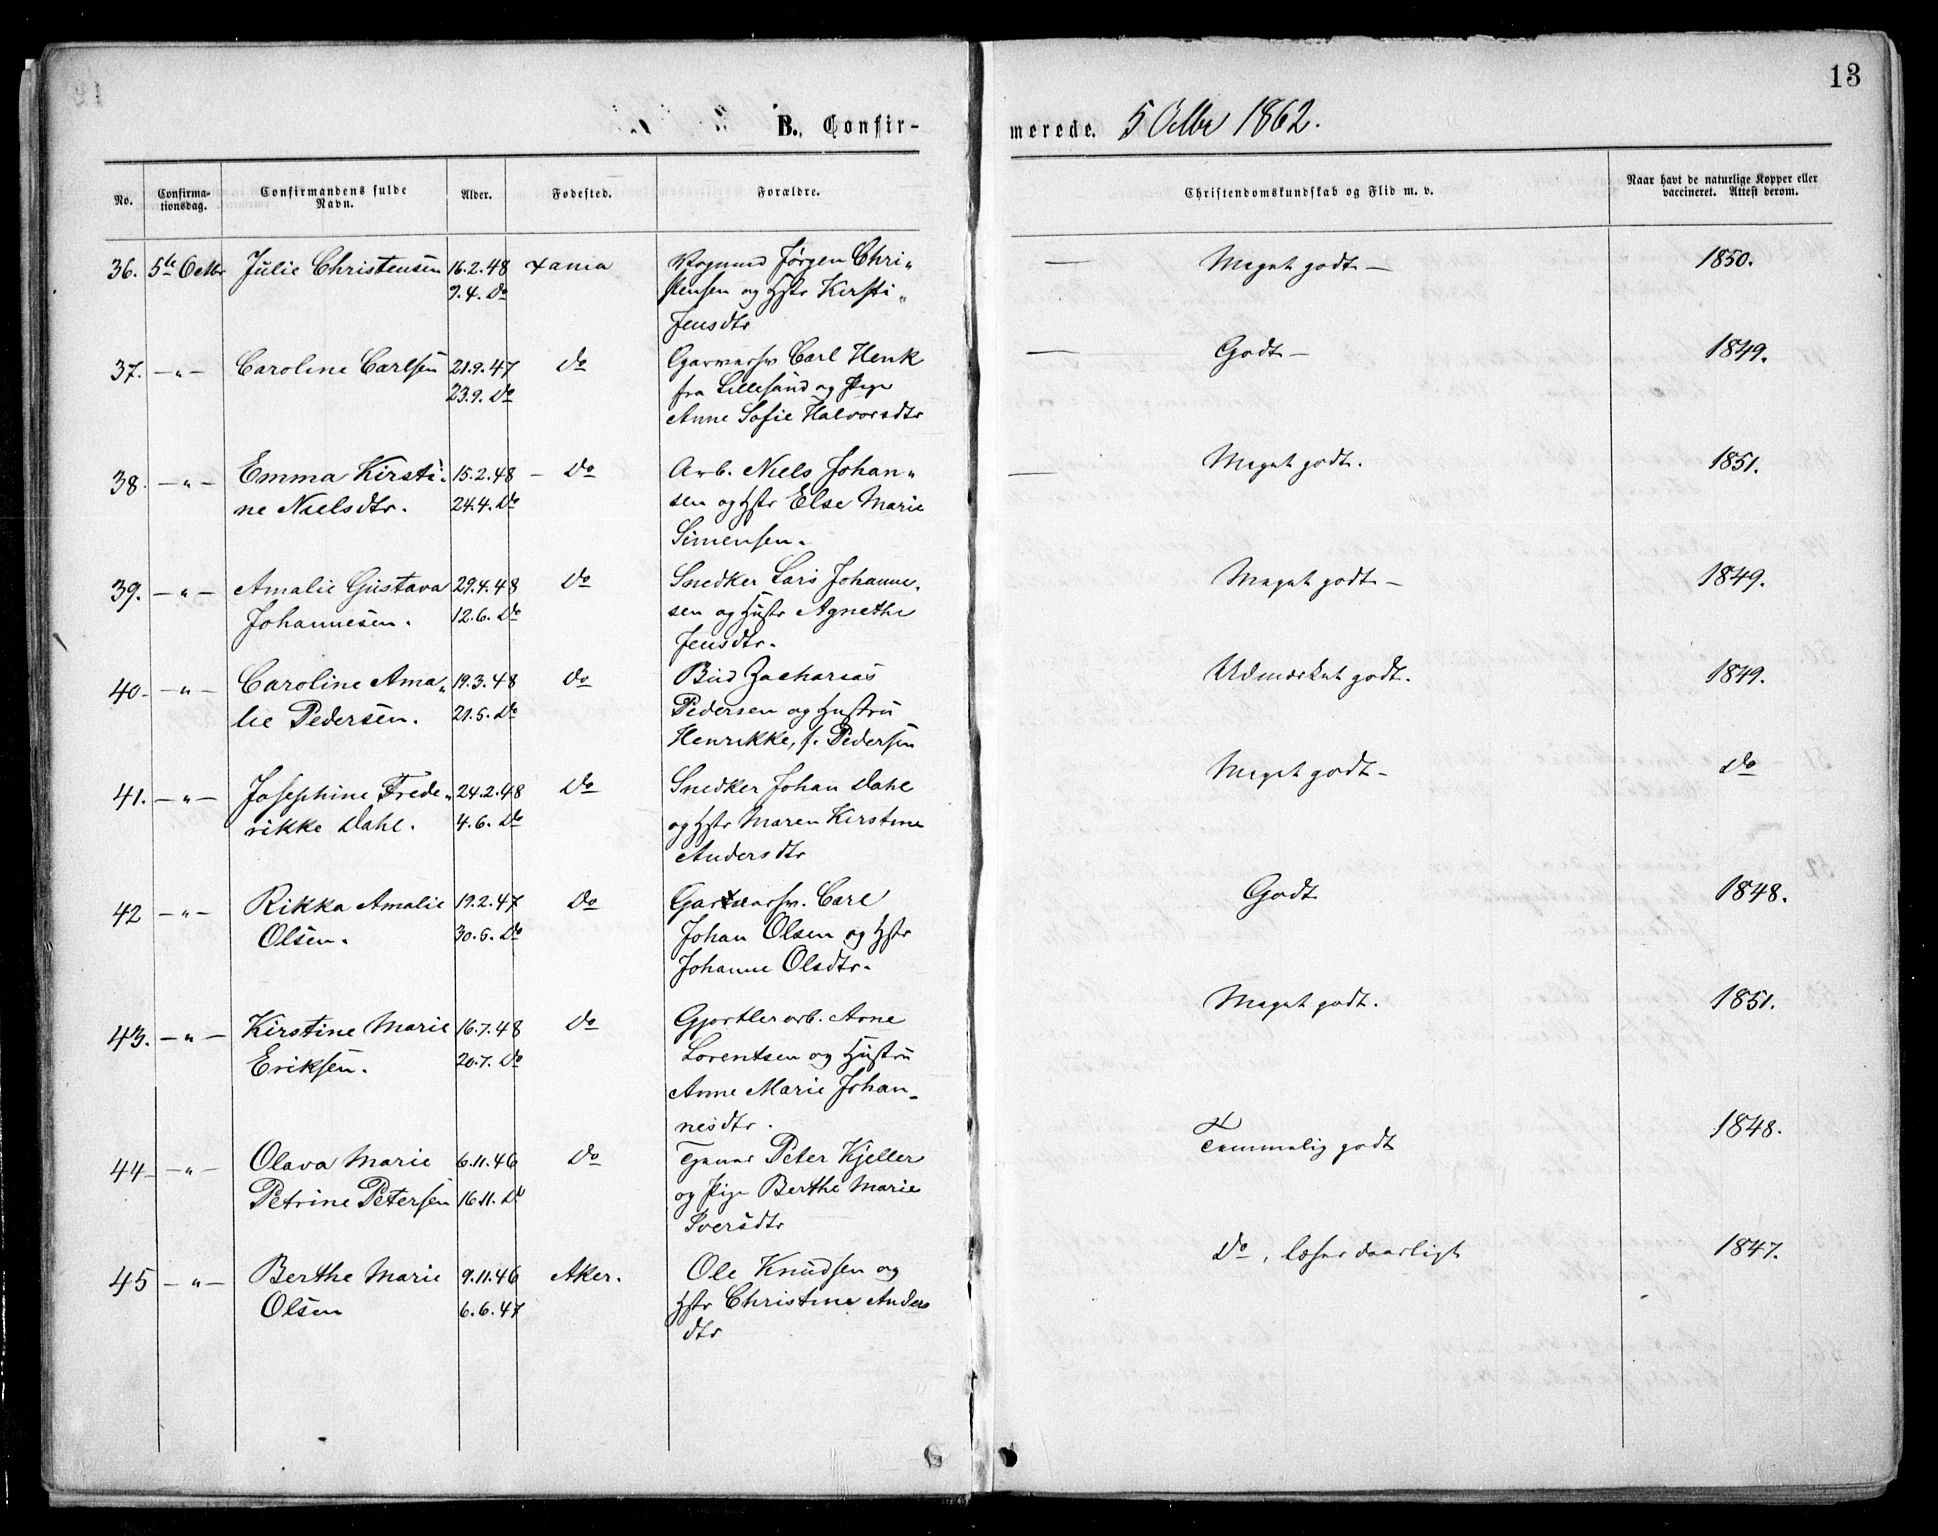 13
B. Confir-
merede. 5 Octbr 1862.
No.
Confirma-
tionsdag.
Confirmandens fulde
Navn.
Alder.
Fødested.
Forældre.
Christendomskundskab og Flid m. v.
Naar havt de naturlige Kopper eller
vaccineret. Attest derom.
36. 5te Octbr Julie Christensen 16.2.48 Xania Vognmd Jørgen Chri„ — Meget godt — 1850.
9.4. Do stensen og Hstr Kirsti„
Jensdtr
37. —„— Caroline Carlsen 21.9.47 Do Garversv Carl Henk — Godt — 1849.
23.9. Do fra Lillesand og Pige
Anne Sofie Halvorsdtr
38. —„— Emma Kirsti- 15.2.48 — Do Arb. Niels Johan„ — Meget godt. 1851.
ne Nielsdtr. 24.4. Do sen og Hstr Else Marie
Simensen.
39. —„— Amalie Gustava 29.4.48 Do Snedker Lars Johanne„ Meget godt — 1849.
Johannesen. 12.6. Do sen og Hustr Agnethe
Jensdtr.
40. —„— Caroline Ama„ 19.3.48 Do Bud Zacharias Udmærket godt. 1849.
lie Pedersen. 21.5. Do Pedersen og Hustru
Henrikke, f. Pedersen
41. —„— Josephine Frede„ 24.2.48 Do Snedker Johan Dahl Meget godt — Do
rikke Dahl. 4.6. Do og Hstr Maren Kirstine
Andersdtr
42 —„— Rikka Amalie 19.2.47 Do Carl Godt 1848.
Olsen. 30.5. Do Johan Olsen og Hstr
Johanne Olsdtr.
43. —„— Kirstine Marie 16.7.48 Do Gjørtlerarb. Arne Meget godt. 1851.
Eriksen. 20.7. Do Lorentsen og Hustru
Anne Marie Johan-
nesdtr.
44 —„— Olava Marie 6.11.46 Do Peter Kjeller Temmelig godt 1848.
Petrine Petersen 16.11. Do og Pige Berthe Marie
Iversdtr
45 —„— Berthe Marie 9.11.46 Aker. Ole Knudsen og Do, læser daarligt 1847.
Olsen 6.6.47 Hstr Christine Anders
dtr